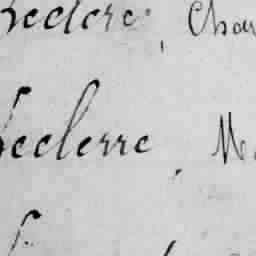 Leclerc, Char
Leclerre, M